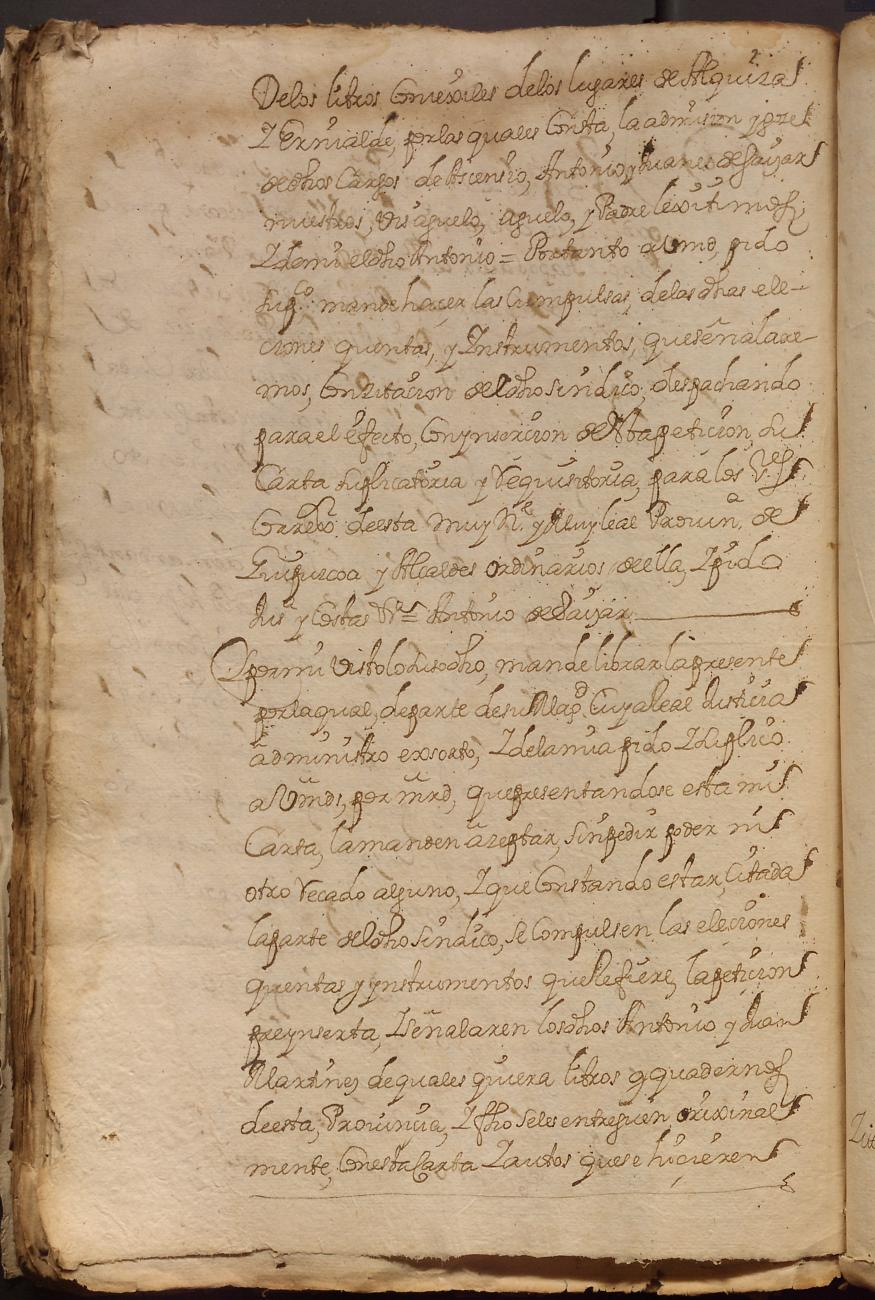 De los litros Conexiles de los lugares de Alquiza
Y Ernialde, por las quales Consta, la admision y goze
de dhos Cargos de Ascensio, Antonio, y Juanes de Saiyar
nuestros, vis aguelo, aguelo, y Padre lexitimos,
Y de mi el dho Antonio = Por tanto a Vmd, pido
Supco. mande haçer las Compulsas, de las dhas ele-
ciones quentas, y Ynstrumentos, que señalare-
mos, Con zitacion del dho Sindico, despachando
para el efecto, Con ynsercion de esta peticion, Su
Carta Suplicatoria y Requisitoria, para los
Corregor. de esta Muy N.e y Muy leal Provin.a de
Guipuzcoa y Alcaldes ordinarios de ella, Y pido
Jusª y Costas Vª = Antonio de Saiyar
Y por mi Visto lo Susodho, mande librar la presente
por la qual, de parte de su Magd. Cuya leal Justicia
administro exsorto, Y de la mia pido Y Suplico
a Vmds, por mrd, que presentandose esta mi
Carta, la manden azeptar, sin pedir poder ni
otro Recado alguno, Y que Constando estar, Citada
la parte del dho Sindico, se Compulsen las eleciones
quentas y ynstrumentos que Refiere, la peticion
preynserta, Y señalaren los dhos Antonio y Juan
Martinez de quales quiera litros y quadernos
de esta, Provincia, Y fho se les entreguen orixinal
mente, Con esta Carta Y autos que se hiçieren